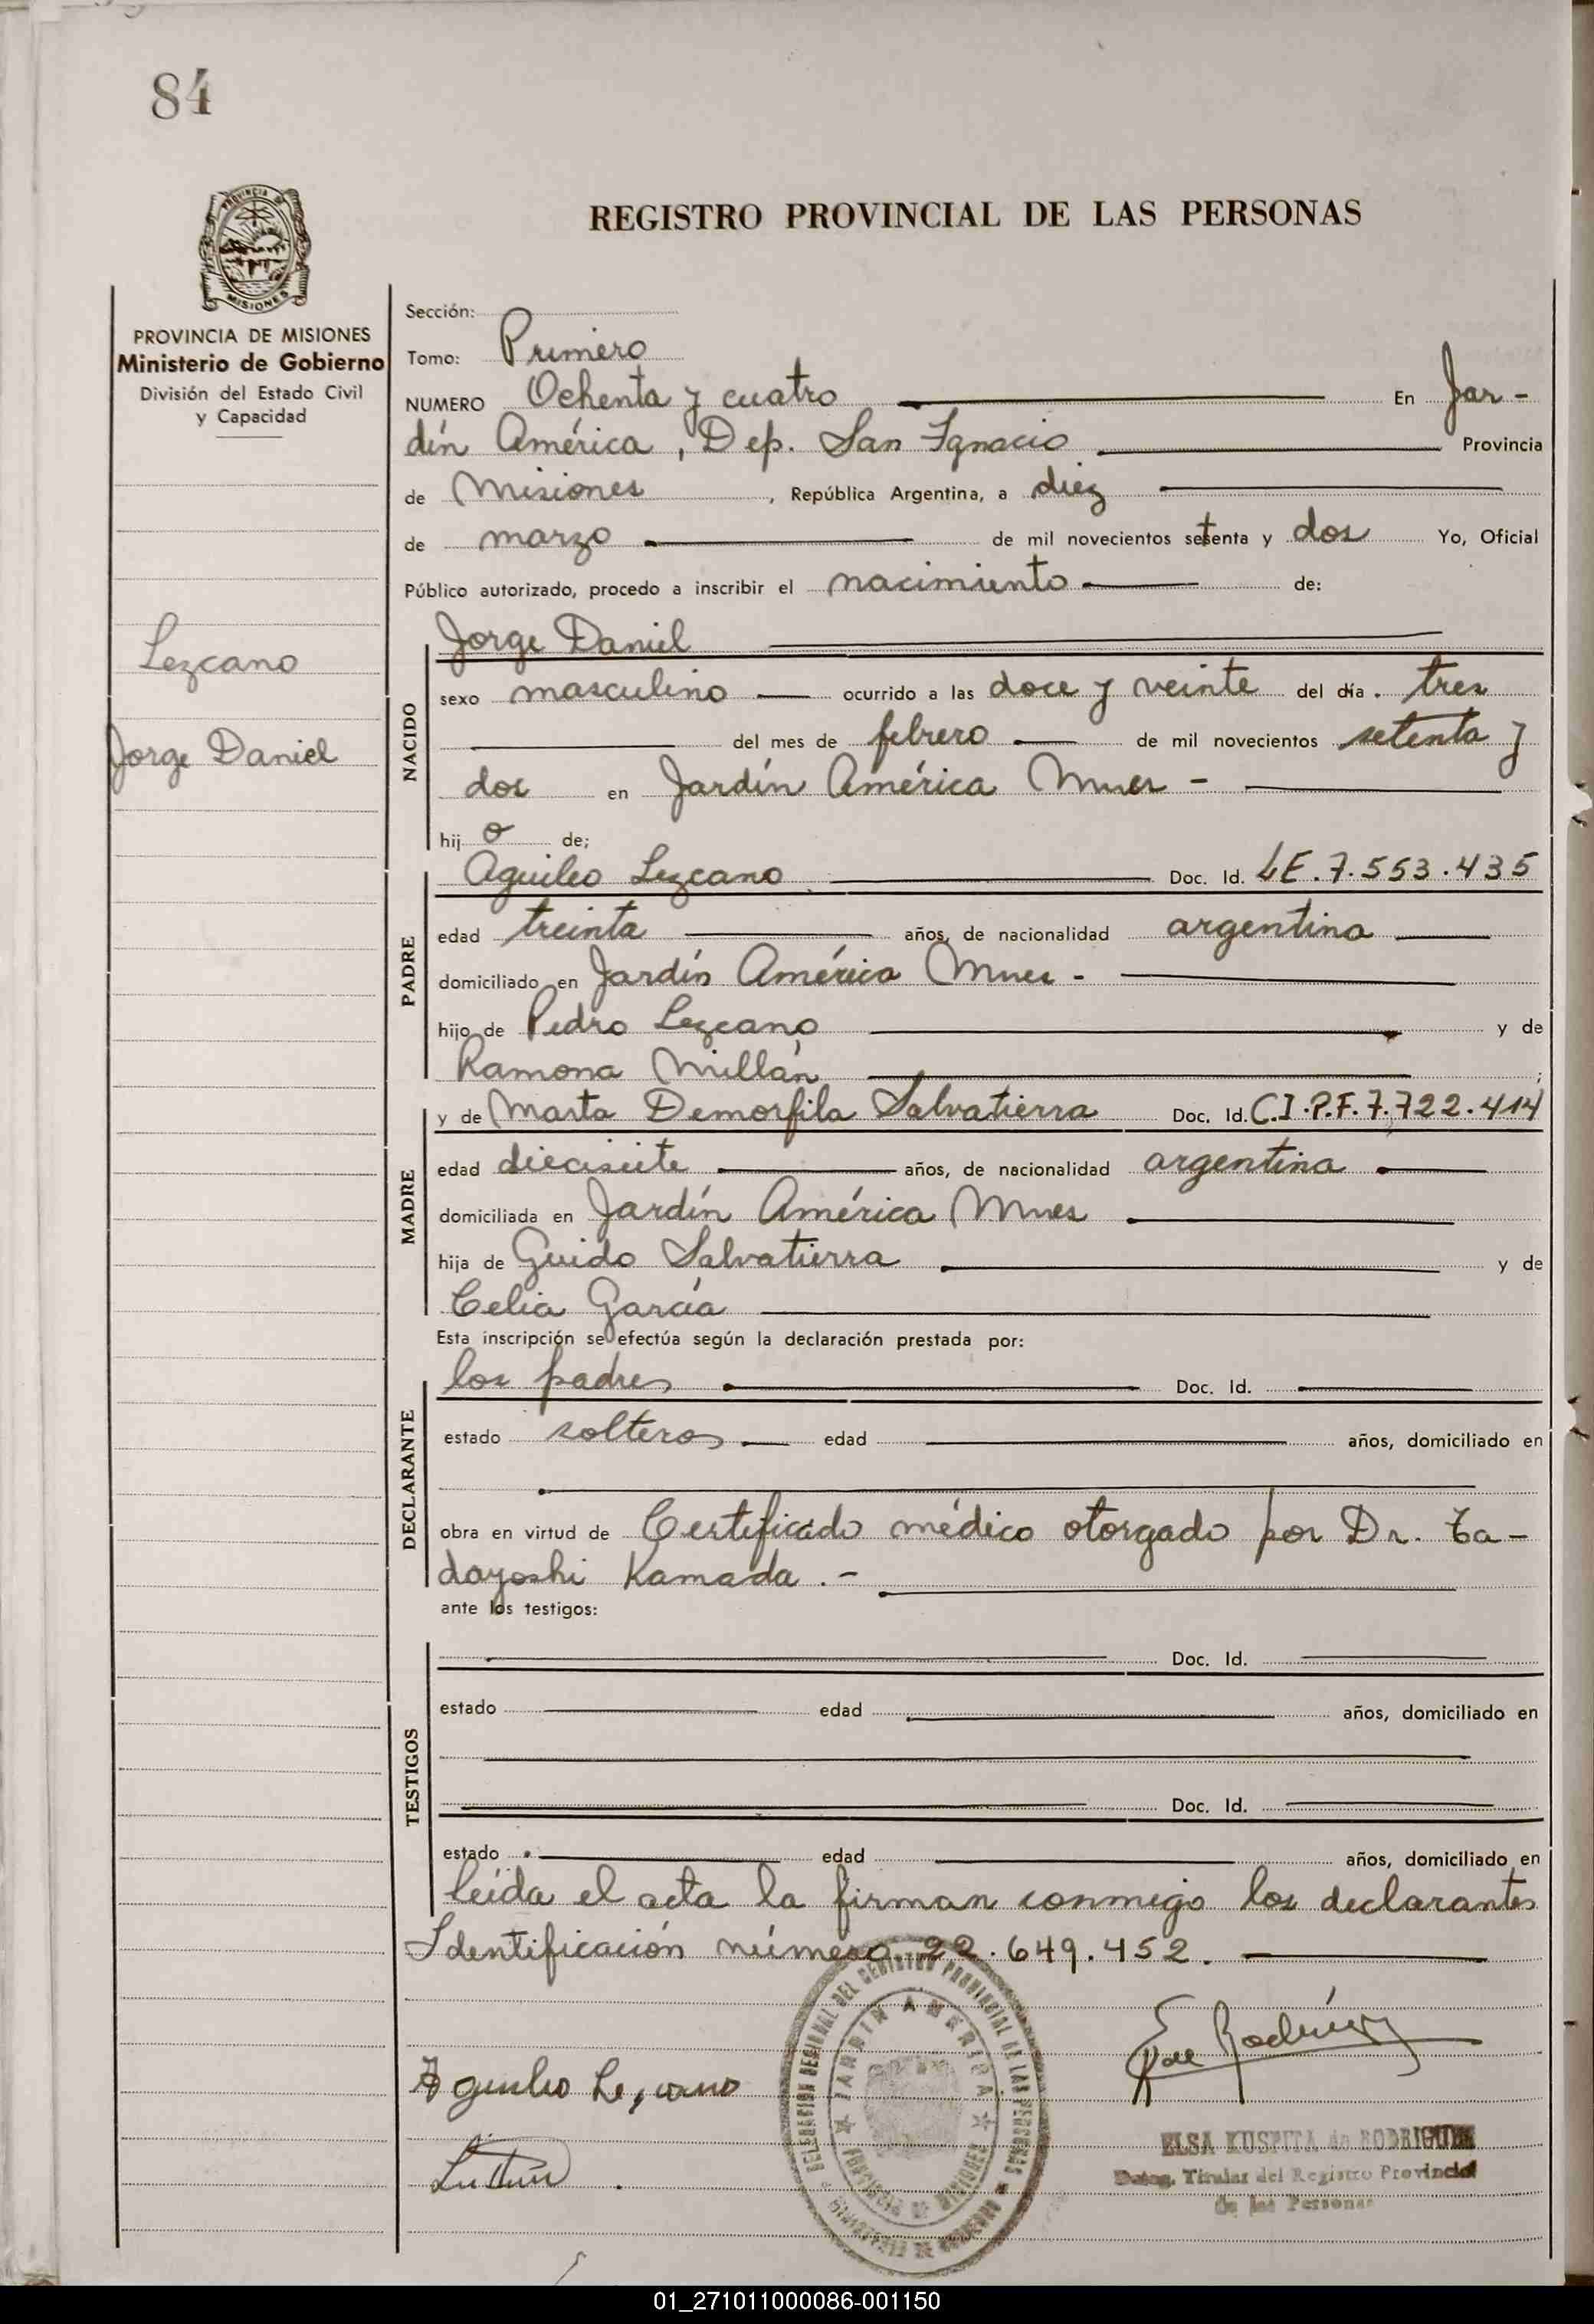 84
PROVINCIA DE MISIONES
Ministerio de Gobierno
División del Estado Civil
y Capacidad
Lezcano
Jorge Daniel
REGISTRO PROVINCIAL DE LAS PERSONAS
Sección:
Tomo: Primero
NUMERO Ochenta y cuatro En Jar-
dín América, Dep. San Ignacio Provincia
de Misiones, República Argentina, a diez
de marzo de mil novecientos setenta y dos Yo, Oficial
Público autorizado, procedo a inscribir el nacimiento de:
NACIDO
Jorge Daniel
sexo masculino ocurrido a las doce y veinte del día tres
del mes de febrero de mil novecientos setenta y
dos en Jardín América Mnes -
hijo de;
PADRE
Aguileo Lezcano Doc. Id. LE.7.553.435
edad treinta años, de nacionalidad argentina
domiciliado en Jardín América Mnes -
hijo de Pedro Lezcano y de
Ramona Millán ;
MADRE
y de Marta Demorfila Salvatierra Doc. Id. C.I.P.F.7.722.414
edad diecisiete años, de nacionalidad argentina
domiciliada en Jardín América Mnes
hija de Guido Salvatierra y de
Celia García
Esta inscripción se efectúa según la declaración prestada por:
DECLARANTE
los padres Doc. Id.
estado solteros edad años, domiciliado en
obra en virtud de Certificado médico otorgado por Dr. Ta-
dayoshi Kamada.-
ante los testigos:
TESTIGOS
Doc. Id.
estado edad años, domiciliado en
Doc. Id.
estado edad años, domiciliado en
leída el acta la firman conmigo los declarantes
Identificación número 22.649.452.
Aguileo Lezcano
DELEGACION REGIONAL DEL REGISTRO PROVINCIAL DE LAS PERSONAS
JARDIN AMERICA
PROVINCIA DE MISIONES
MINISTERIO DE GOBIERNO
ELSA KUSPITA de RODRIGUEZ
Deleg. Titular del Registro Provincial
de las Personas
01_271011000086-001150